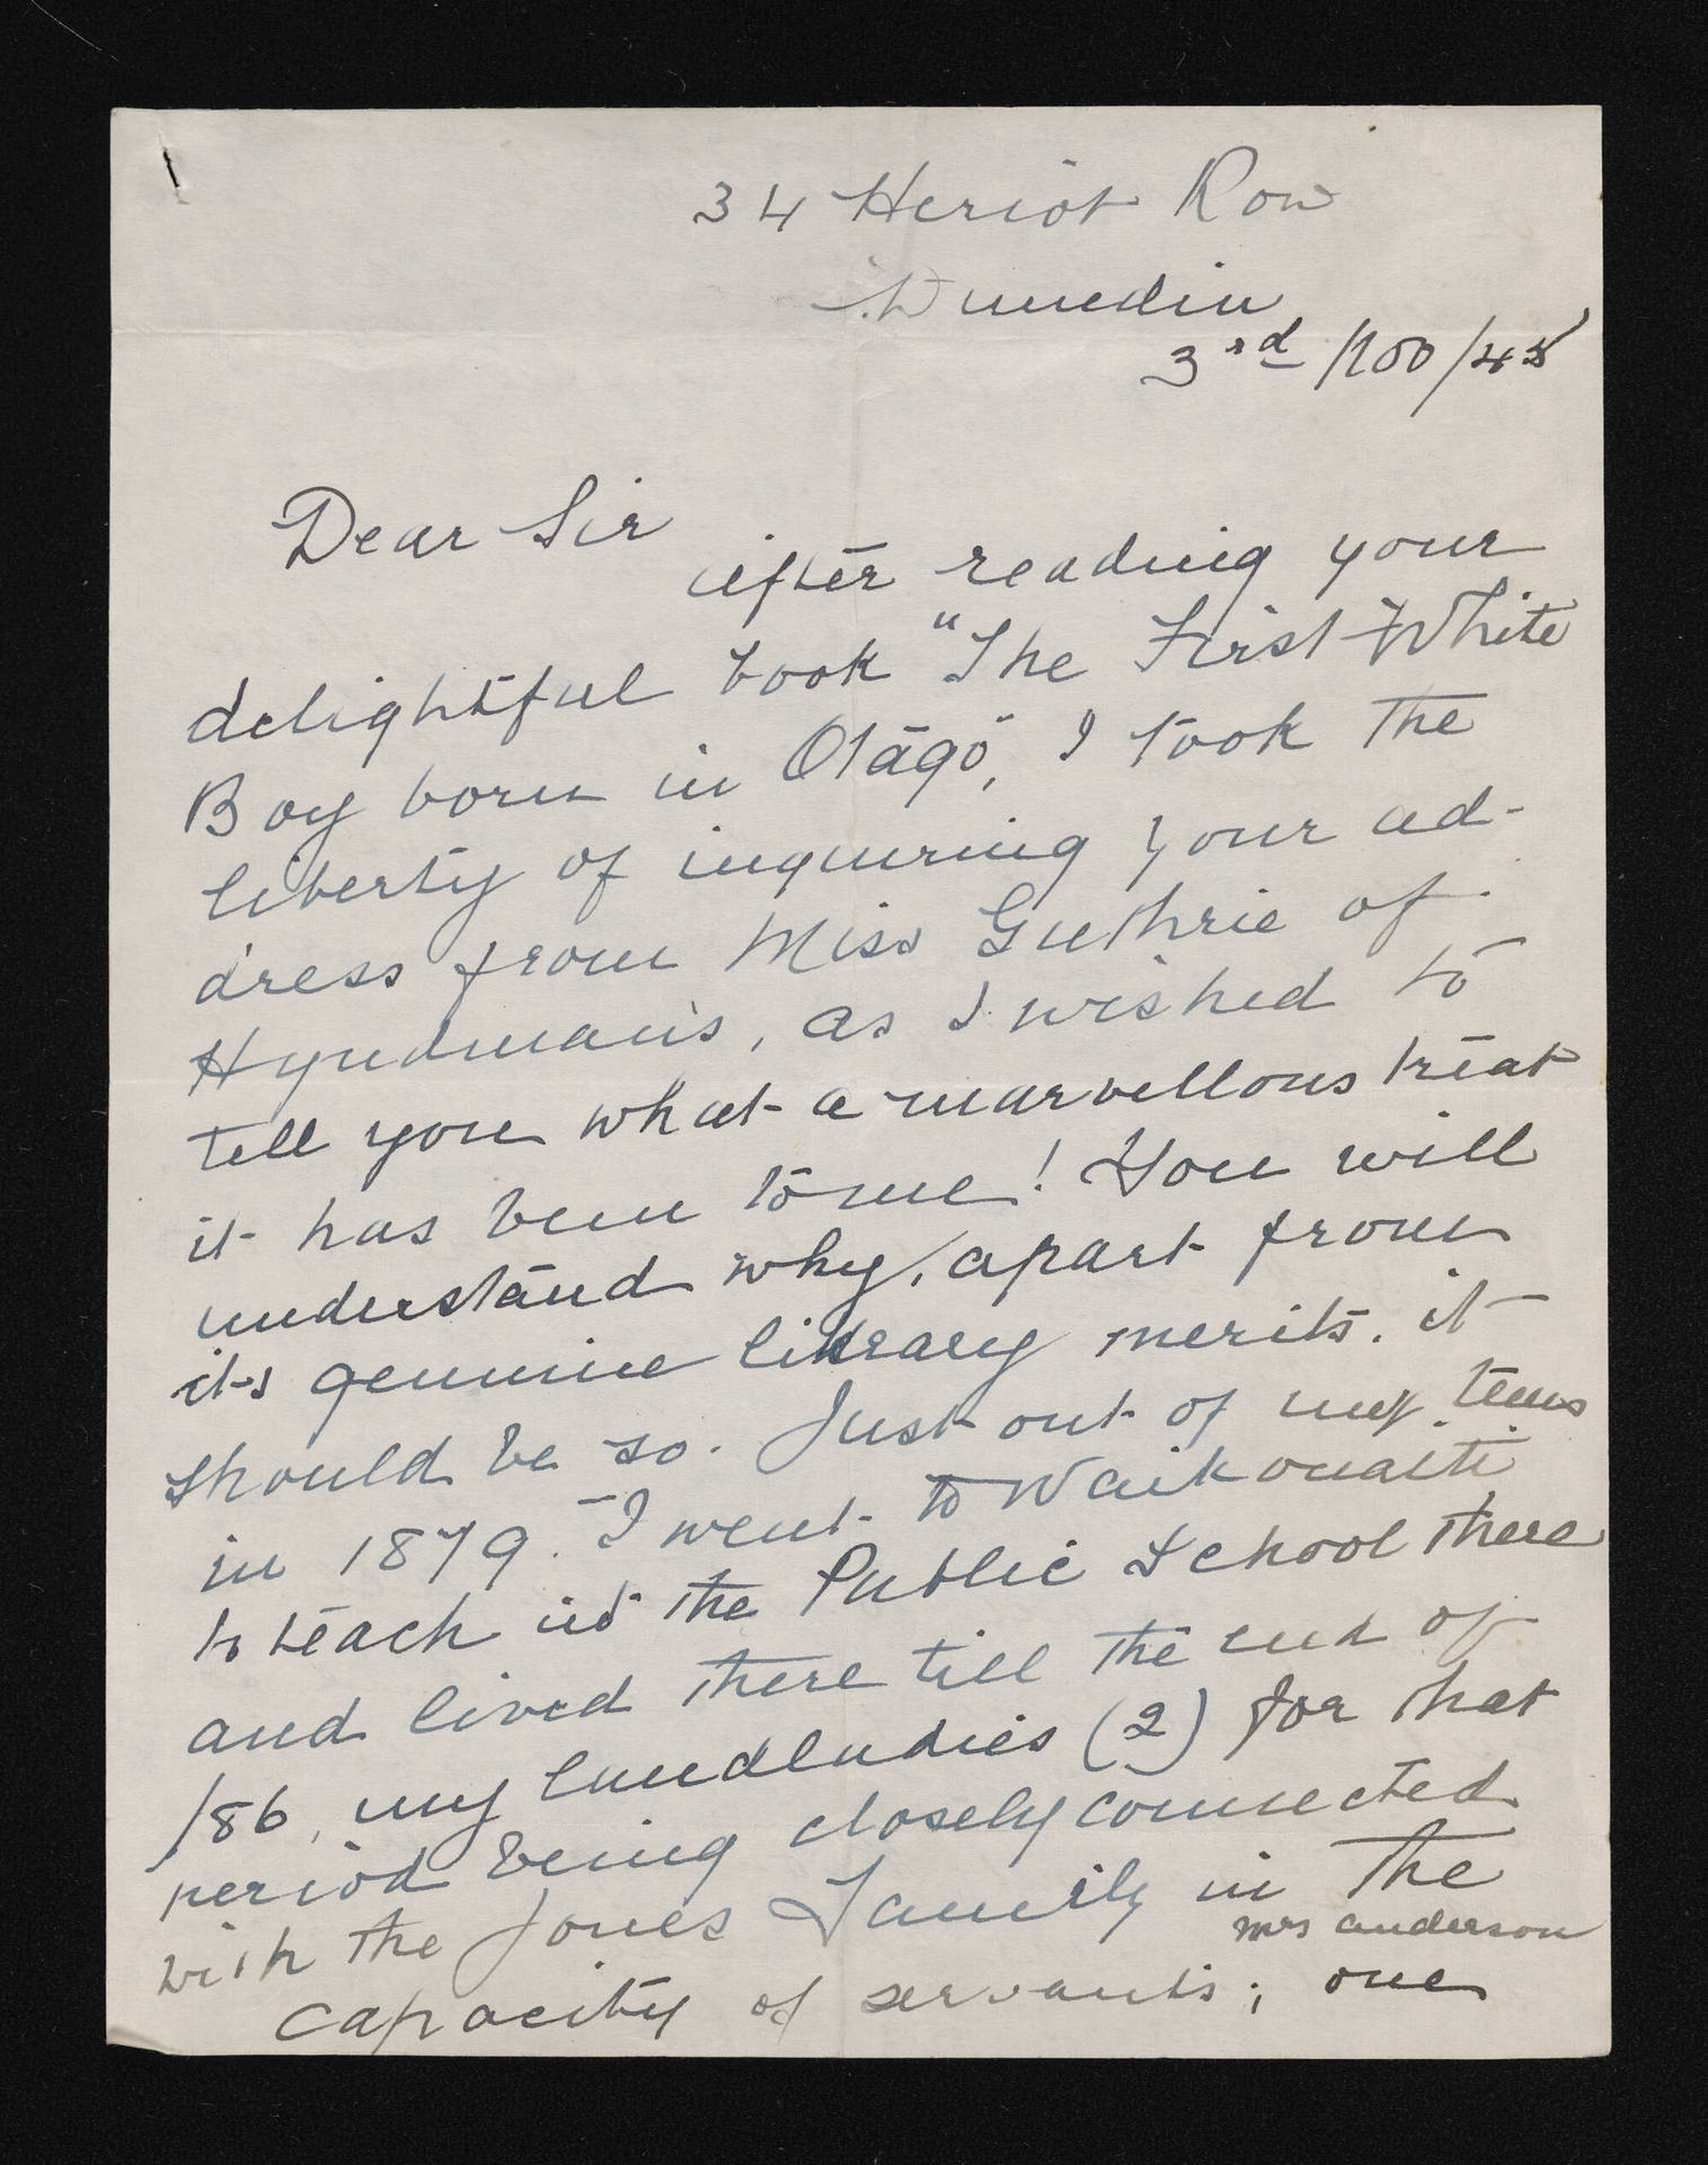 34 Heriot Row
Dunedin
3rd
Dear Sir
after reading your
delightful book "The First White
Boy born in Otago", I took the
liberty of inquiring your ad-
dress from Miss Guthrie of
Hyndman's, as I wished to
tell you what a marvellous treat
it has been to me! You will
understand why, apart from
its genuine literary merits, it
should be so. Just out of my teens
in 1879. I went to Waikouaiti
to teach in the Public School there
and lived there till the end of
/86, my landladies (2) for that
period being closely connected
with the Jones Family in the
Mrs Anderson
capacity of servants; one